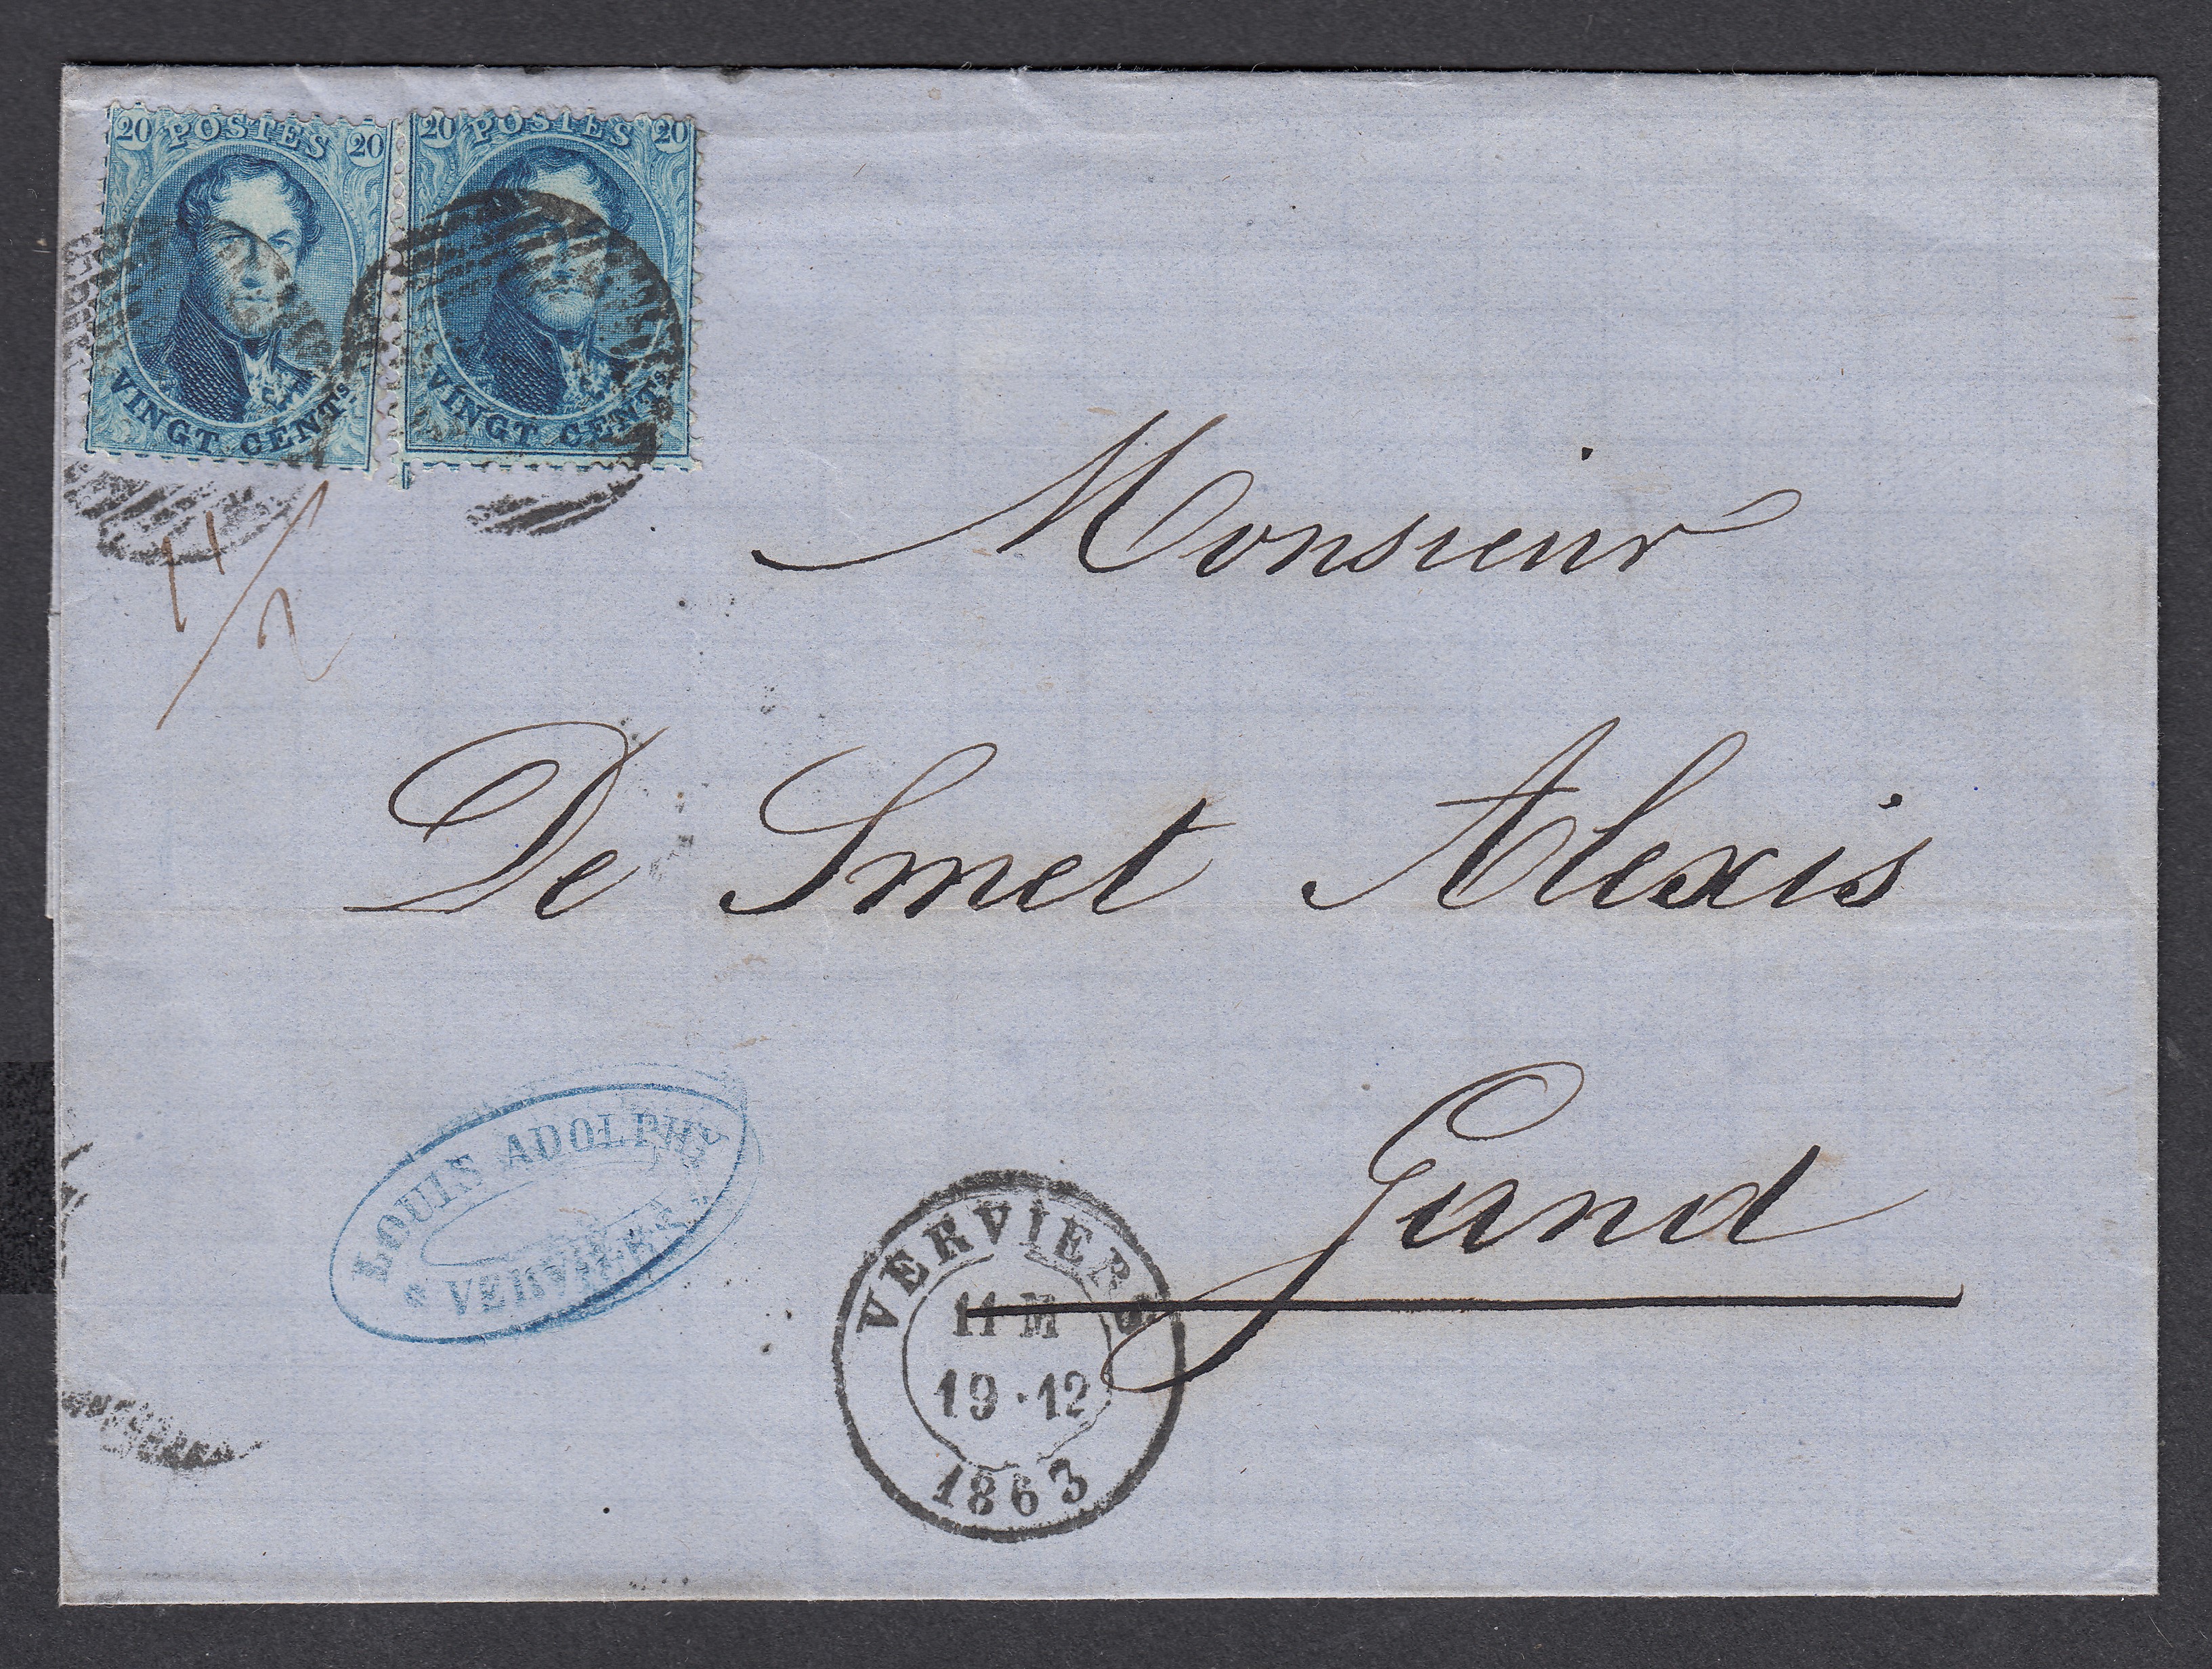 20 POSTES 20
VINGT CENTS
20 POSTES 20
VINGT CENTS
11/2
Monsieur
De Smet Alexis
Gand
LOUIS ADOLPHY
VERVIERS
VERVIERS
11 M
19 · 12
1863